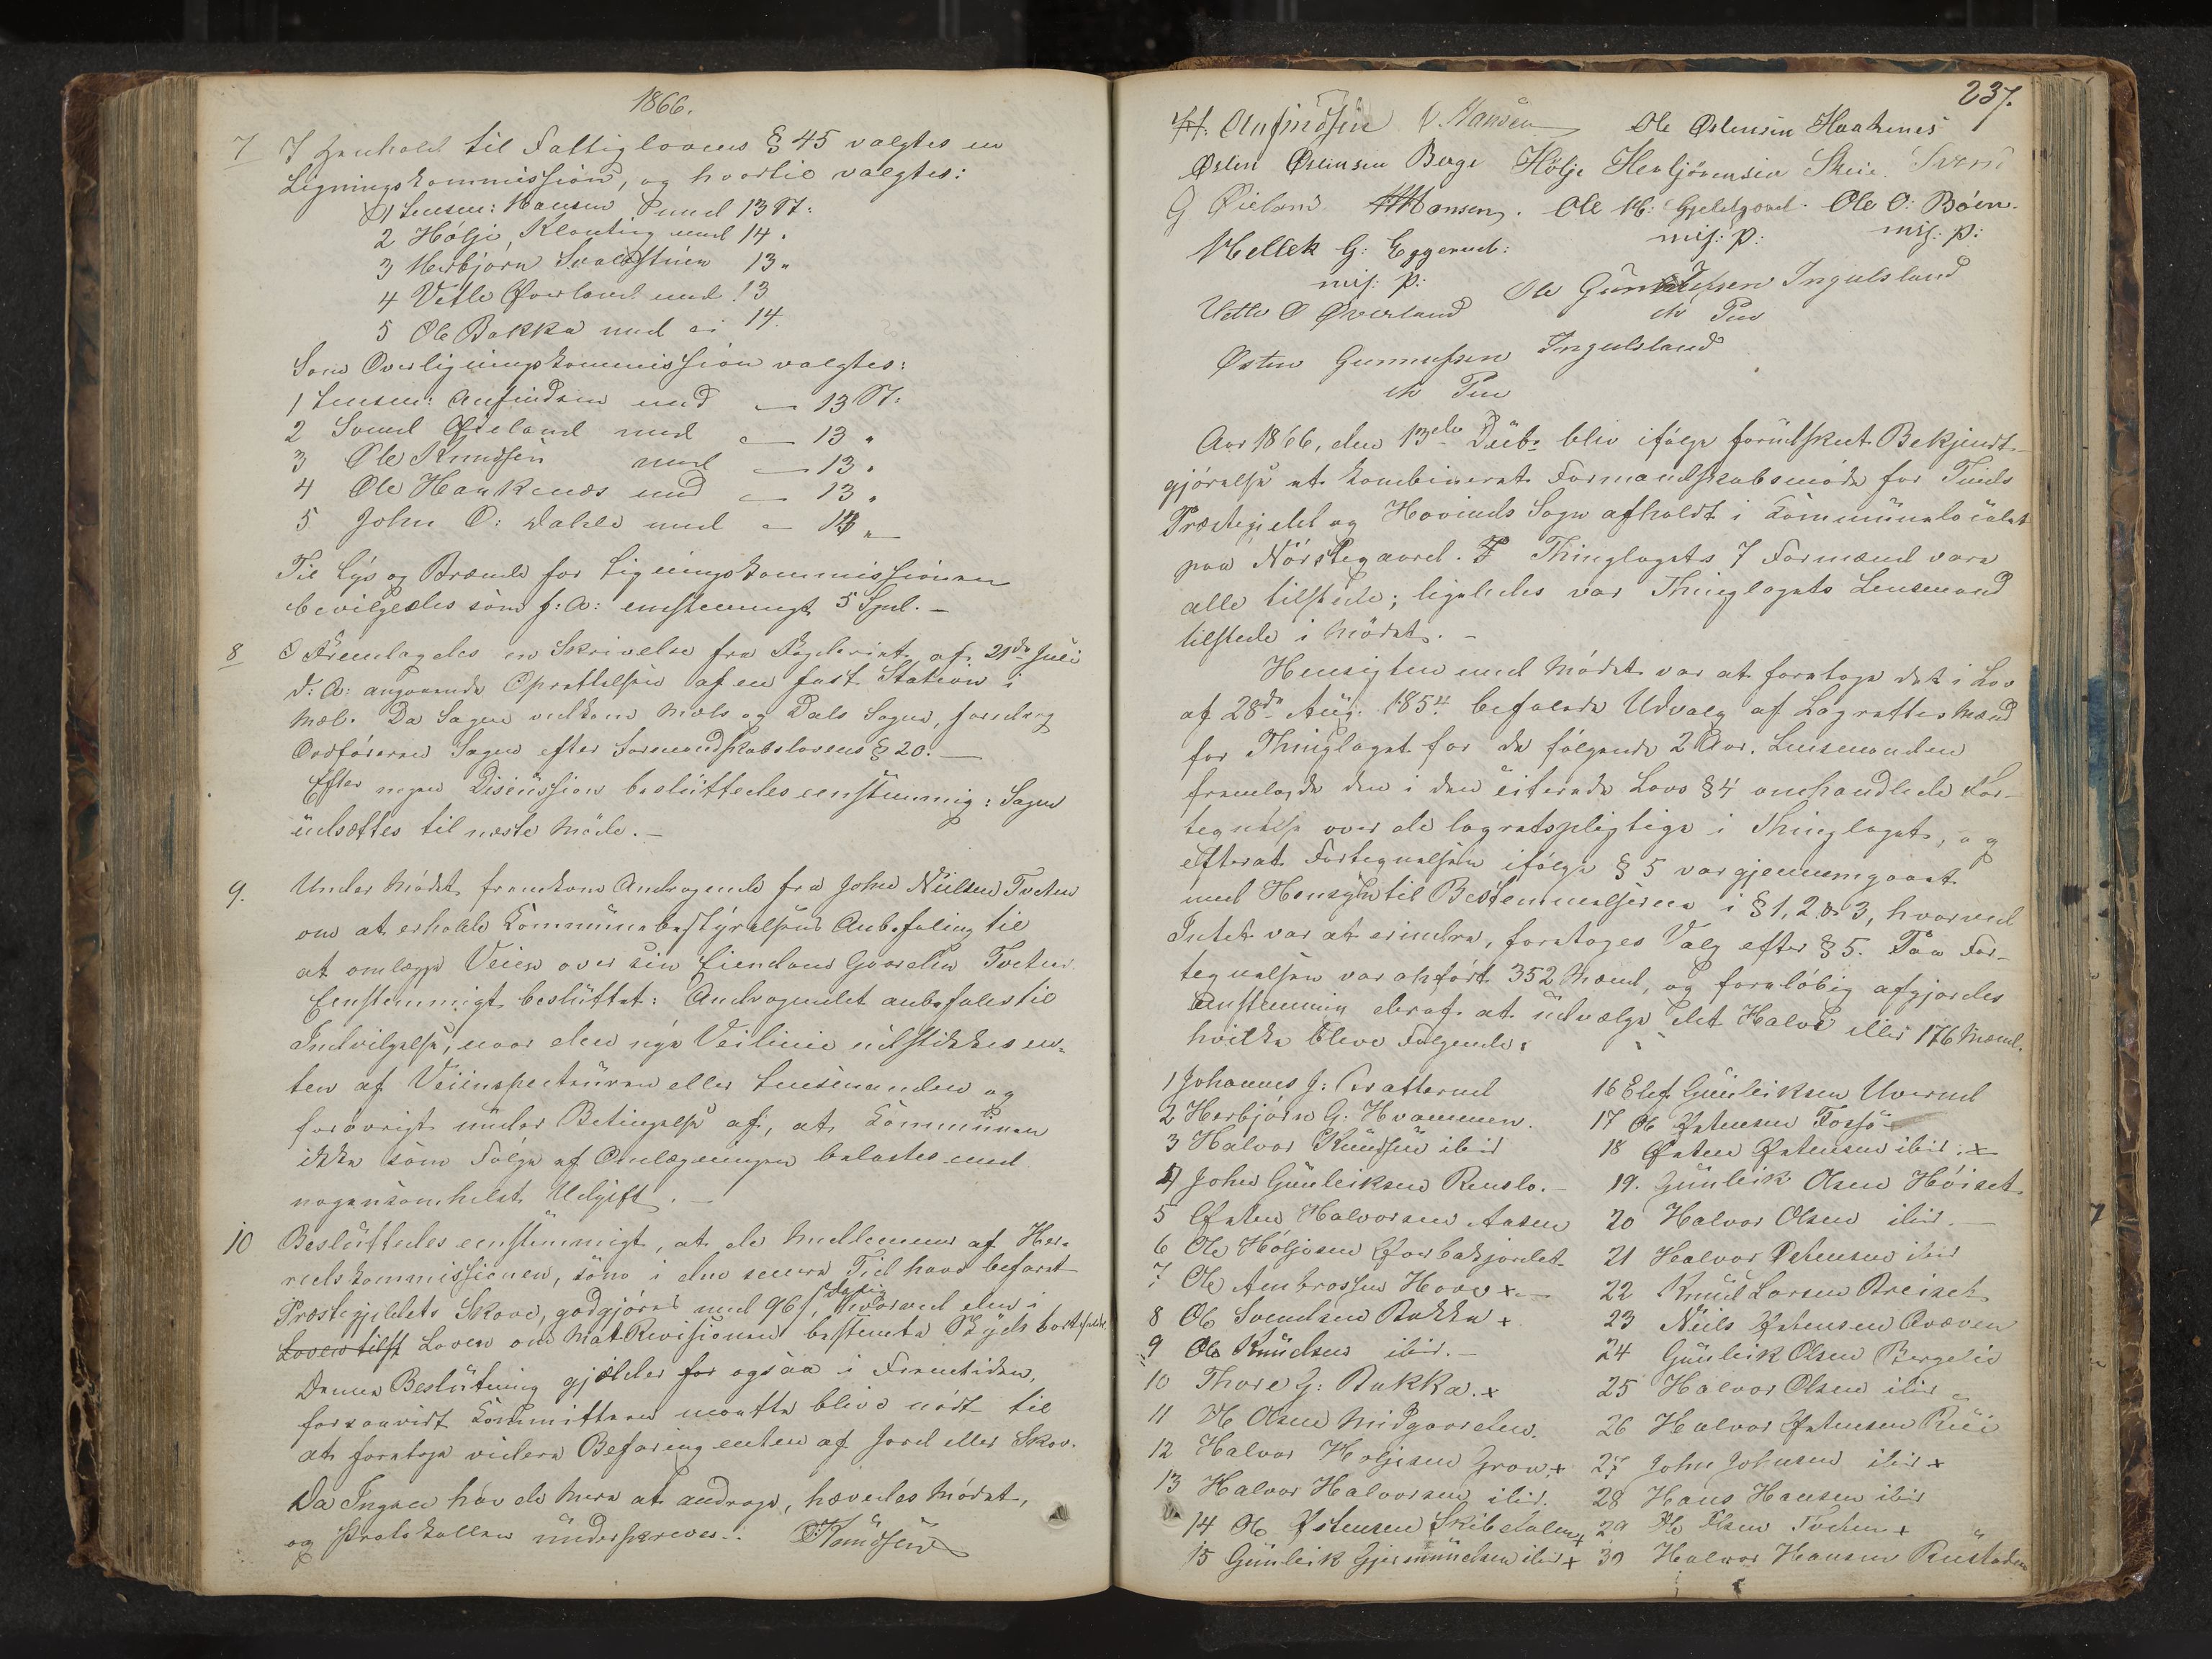 1866.
7 I Henhold til Fattiglovens § 45 valgtes en
Ligningskommission, og hvortil valgtes:
1 Lensm: Hansen med 13 St:
2 Hölje Klonting med 14 "
3 Herbjörn 13 "
4 Vetle Överland med 13
5 Ole Bakka med 14.
Som Overligningskommission valgtes:
1 Lensm: Anfindsen med — 13 St:
2 Svend Öieland med — 13 "
3 Ole Knudsen med — 13 "
4 Ole Haakenæs med — 13 "
5 John O: Dahle med — 13 "
Til Lys og Brænde for Ligningskommissionen
bevilgedes som f: A: enstemmigt 5 Spd. —
8 Fremlagdes en Skrivelse fra Fogderiet af 21de Juli
d: A: angaaende Oprettelsen af en fast Station i
Mæl. Da Sagen vedkom Mæls og Dals Sogne, foredrog
Ordföreren Sagen efter Formandskabslovens § 20. —
Efter nogen Discussion besluttedes eenstemmig: Sagen
udsættes til næste Möde. —
9. Under Mödet fremkom Andragende fra John Nielsen Tveten
om at erholde Kommunebestyrelsens Anbefaling til
at omlægge Veien over sin Eiendom Gaarden Tveten.
Eenstemmigt besluttet: Andragendet anbefales til
Indvilgelse, naar den nye Veilinie udstikkes en-
ten af Veiinspecteuren eller Lensmanden og
forövrigt under Betingelse af, at Kommunen
ikke som Fölge af Omlægningen belastes med
nogensomhelst Udgift. —
10 Besluttedes eenstemmigt, at de Medlemmer af Her-
redskommissionen, som i den senere Tid have befaret
Præstegjeldets Skove, godtgjöres med 96 s daglig, hvorved den i
Loven om Mat Revisionen bestemte Skyds bortfalder.
Denne Beslutning gjelder for ogsaa i Fremtiden,
forsaavidt Committeen maatte blive nödt til
at foretage videre Befaring enten af Jord eller Skov.
Da Ingen havde mere at andrage, hævedes Mödet,
og Protokollen underskreves. O: Knudsen
237.
H: Anfindsen O. Hansen Ole Östensen Haakenes
Östen Östensen Berge Hölje Herbjörnsen Skeie. Svend
G Öieland HHansen. Ole H: Gjeldgord. Ole O: Böen.
Mellek G: Eggerud: m: f: P: m: f: P:
m: f: P:
Vetle O Överland Ole Gunnulfsen Ingulsland
m Pen
Östen Gunnufsen Ingulsland
m Pen
Aar 1866, den 13de Decb. blev ifölge forudskeet Bekjendt-
gjörelse et kombineret Formandskabsmöde for Tinds
Præstegjeld og Hovinds Sogn afholdt i Kommunelocalet
paa Nörstegaard. Thinglagets 7 Formænd vare
alle tilstede; ligeledes var Thinglagets Lensmand
tilstede i Mödet. —
Hensigten med Mödet var at foretage det i Lov
af 28de Aug. 1854 befalede Udvalg af Lagrettesmænd
for Thinglaget for de fölgende 2 Aar. Lensmanden
fremlagde den i den citerede Lovs § 4 omhandlede For-
tegnelse over de lagretspligtige i Thinglaget, og
efterat Fortegnelsen ifölge § 5 var gjennemgaaet
med Hensyn til Bestemmelserne i § 1, 2 & 3, hvorved
Intet var at erindre, foretoges Valg efter § 5. Paa For-
tegnelsen var anfört 352 Mænd, og foreløbig afgjordes
eenstemmig deraf at udvælge det Halve eller 176 Mænd.
hvilke bleve Fölgende:
1 Johannes J: Bratterud
2 Herbjörn G. Hvammen.
3 Halvor Knudsen ibid
4 John Gunleiksen Renslo. —
5 Östen Halvorsen Aasen
6 Ole Höljesen Örbækjordet
7 Ole Ambrossen Hovo x —
8 Ole Svendsen Bakka +
9 Ole Knudsen ibid. —
10 Thore G: Bakka. x
11 H Olsen Midgaarden.
12 Halvor Holjesen Grov +
13 Halvor Halvorsen ibid.
14 Ole Östensen Skibsdalen +
15 Gunleik Gjermundsen ibid +
16 Elef Gunleiksen Uverud
17 Ole Östensen Fossö
18 Östen Östensen ibid. x
19. Gunleik Olsen Höiset
20 Halvor Olsen ibid. —
21 Halvor Östensen ibid
22 Knud Larsen Breiset
23 Niels Östensen Qvæven
24 Gunleik Olsen Bergelie
25 Halvor Olsen ibid
26 Halvor Östensen Rui
27 John Johnsen ibid +
28 Hans Hansen ibid
29 Ole Olsen Tveten +
30 Halvor Hansen Rustaden